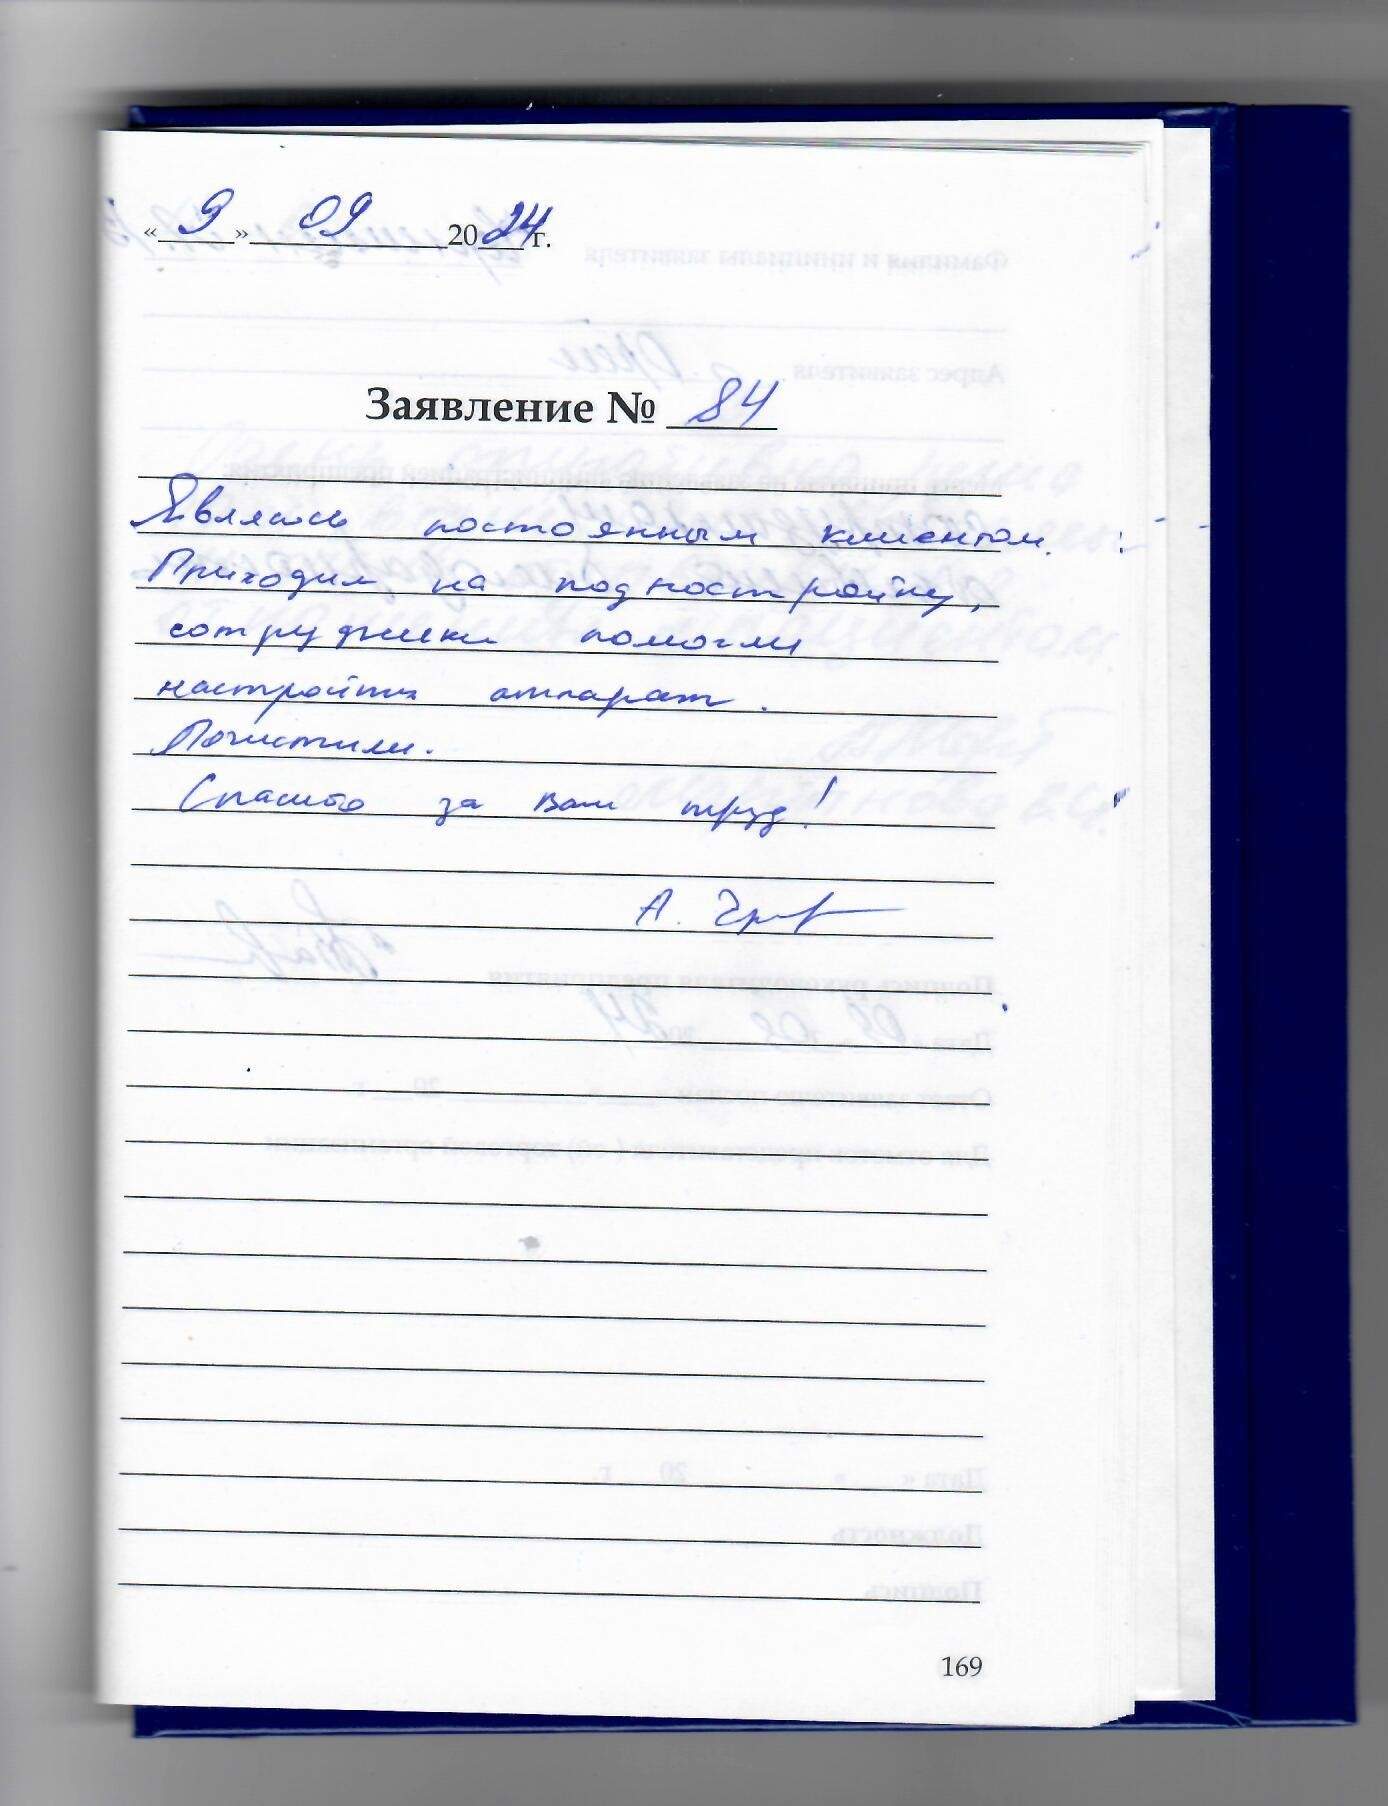 « 9 » 09 2024 г.
Заявление № 84
Являюсь постоянным клиентом.
Приходил на поднастройку,
сотрудники помогли
настроить аппарат.
Почистили.
Спасибо за Ваш труд!
А.
169